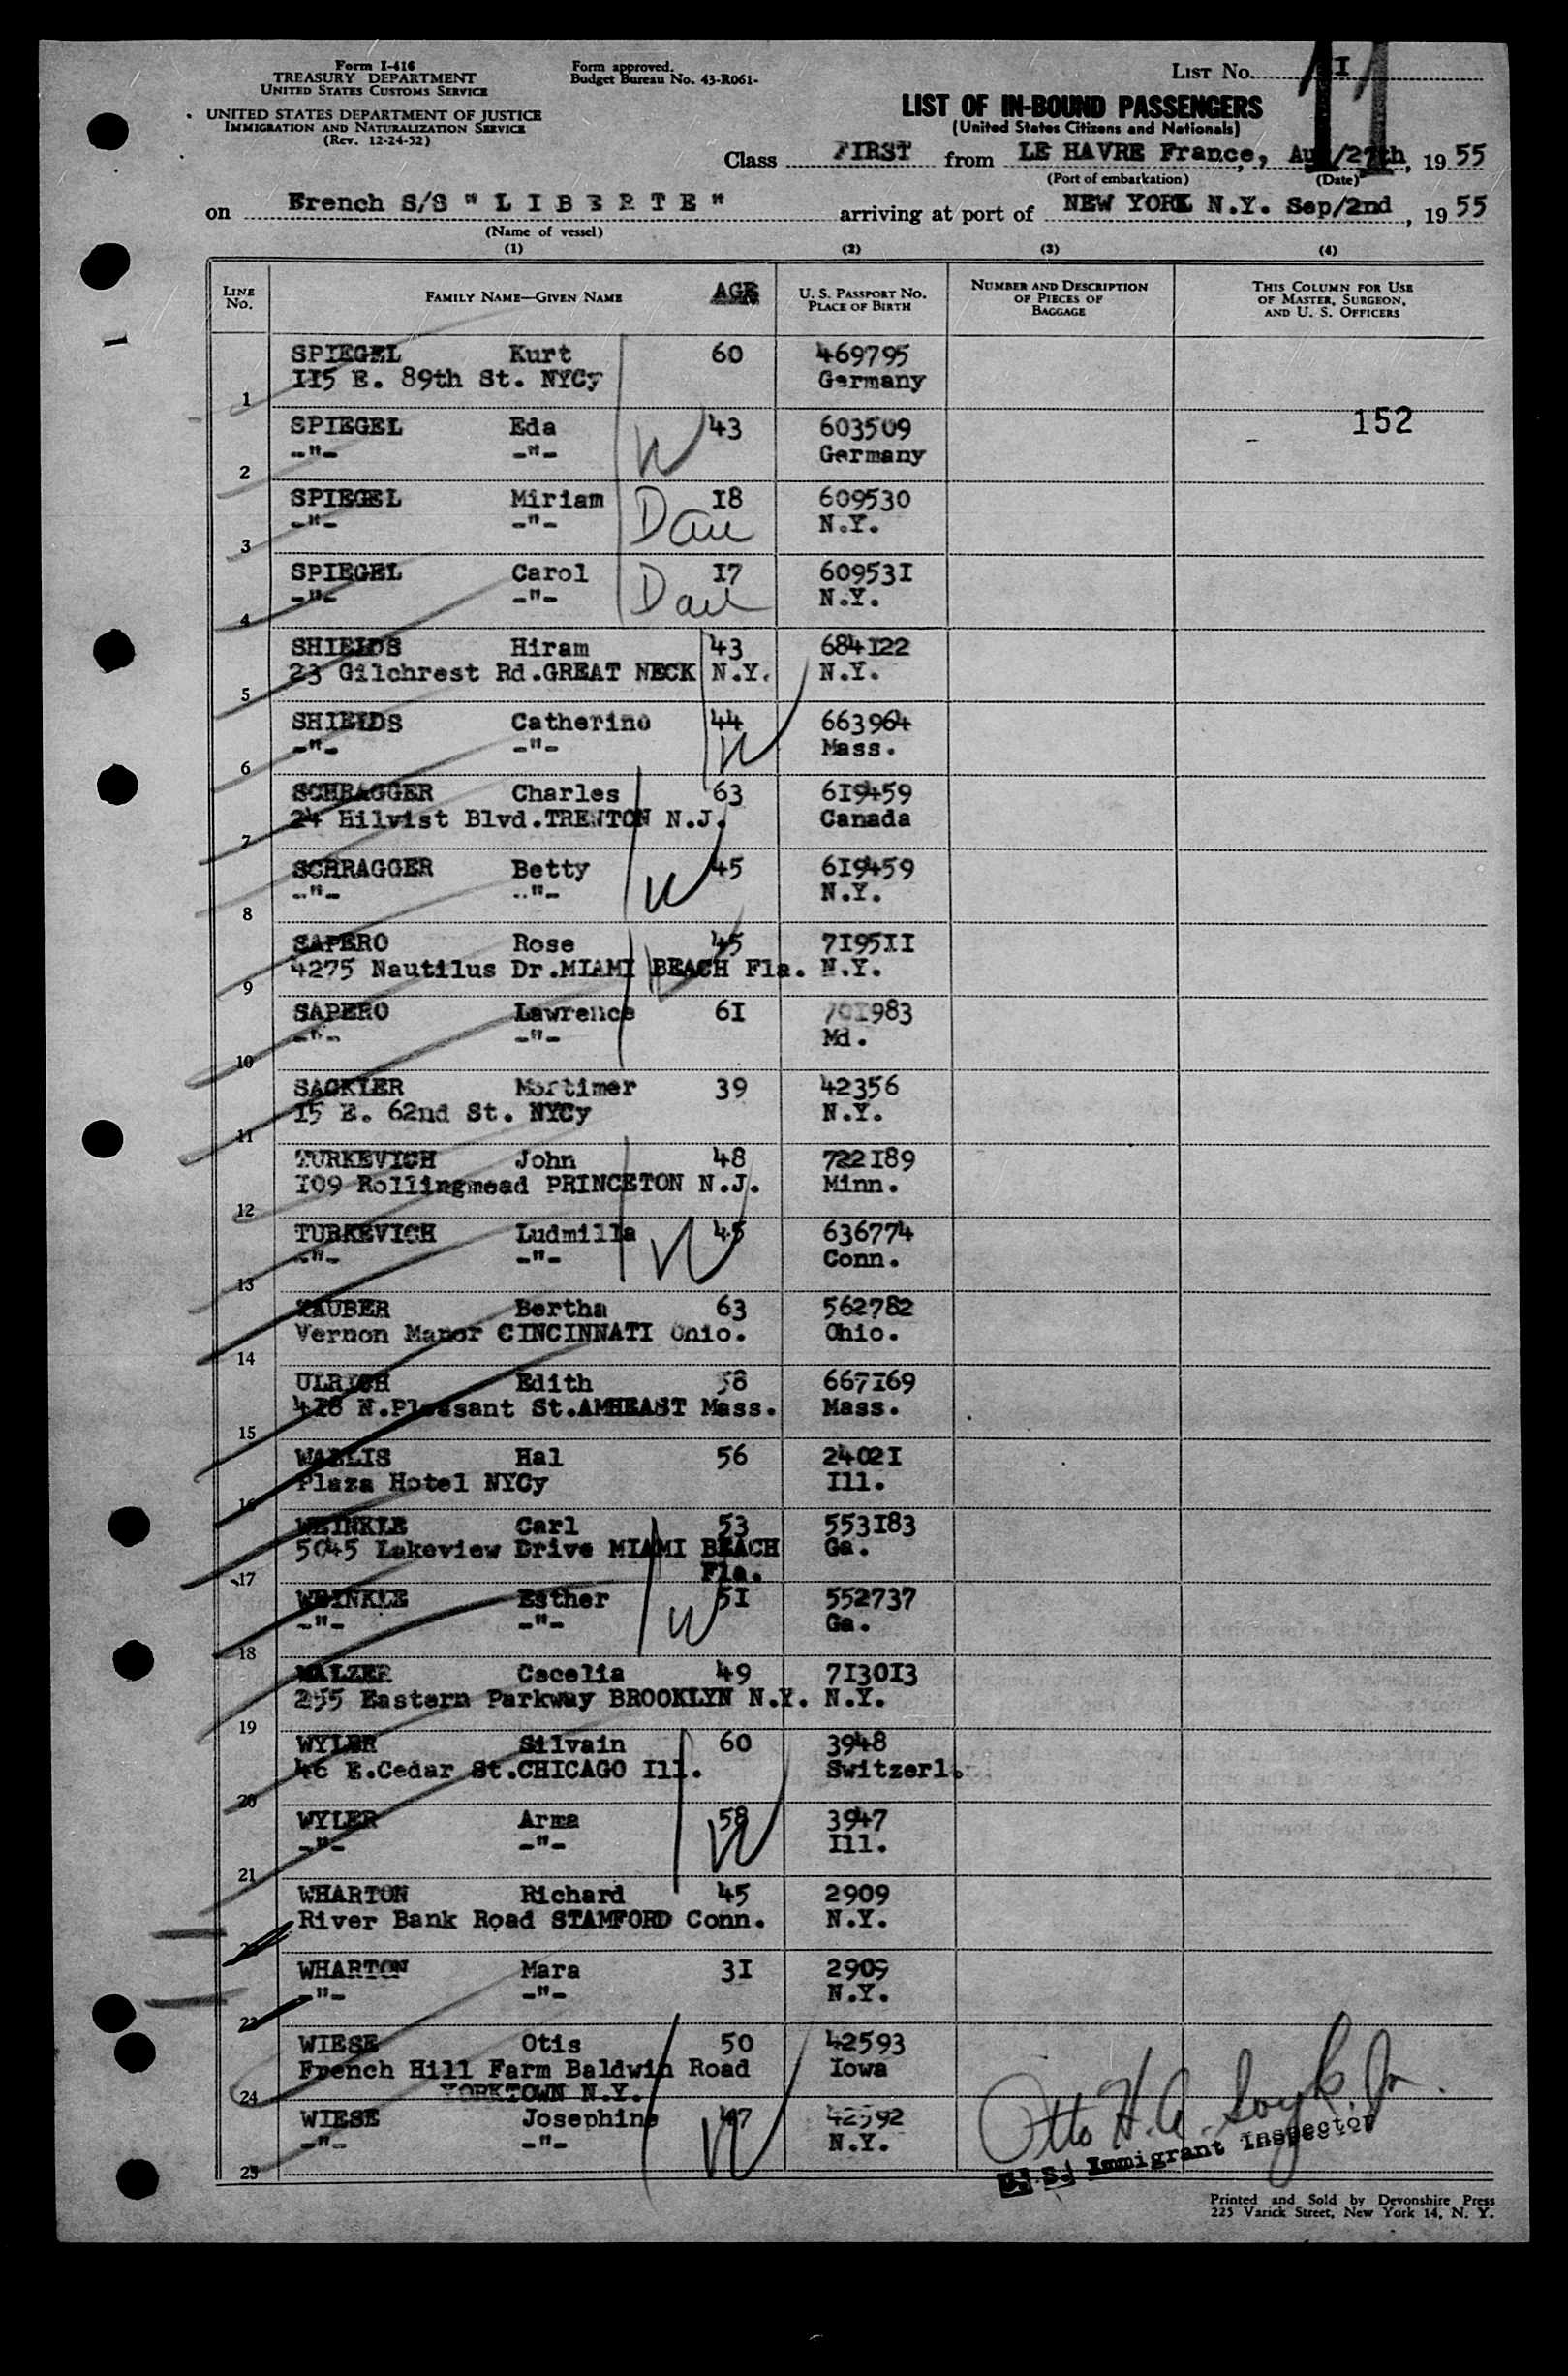 Form I-416
TREASURY DEPARTMENT
UNITED STATES CUSTOMS SERVICE
UNITED STATES DEPARTMENT OF JUSTICE
IMMIGRATION AND NATURALIZATION SERVICE
(Rev. 12-24-52)
Form approved.
Budget Bureau No. 43-R061-
LIST No. I
LIST OF IN-BOUND PASSENGERS
(United States Citizens and Nationals)
Class FIRST from LE HAVRE France, /27th, 1955
(Port of embarkation) (Date)
on French S/S " L I B E R T E " arriving at port of NEW YORK N.Y. Sep/2nd, 1955
(Name of vessel)
(1) (2) (3) (4)
LINE No. FAMILY NAME—GIVEN NAME AGE U. S. PASSPORT NO. PLACE OF BIRTH NUMBER AND DESCRIPTION OF PIECES OF BAGGAGE THIS COLUMN FOR USE OF MASTER, SURGEON, AND U. S. OFFICERS
SPIEGEL Kurt 60 469795
1 115 E. 89th St. NYCy Germany
SPIEGEL Eda W 43 603509 152
2 -"- -"- Germany
SPIEGEL Miriam Dau 18 609530
3 -"- -"- N.Y.
SPIEGEL Carol Dau 17 609531
4 -"- -"- N.Y.
SHIELDS Hiram 43 684122
5 23 Gilchrest Rd.GREAT NECK N.Y. N.Y.
SHIELDS Catherine 44 W 663964
6 -"- -"- Mass.
SCHRAGGER Charles 63 619459
7 24 Hilvist Blvd.TRENTON N.J. Canada
SCHRAGGER Betty W 45 619459
8 -"- -"- N.Y.
SAPERO Rose 45 719511
9 4275 Nautilus Dr.MIAMI BEACH Fla. N.Y.
SAPERO Lawrence 61 701983
10 -"- -"- Md.
SACKLER Mortimer 39 42356
11 15 E. 62nd St. NYCy N.Y.
TURKEVICH John 48 722189
12 109 Rollingmead PRINCETON N.J. Minn.
TURKEVICH Ludmilla W 45 636774
13 -"- -"- Conn.
TAUBER Bertha 63 562782
14 Vernon Manor CINCINNATI Ohio. Ohio.
ULRICH Edith 58 667169
15 418 N.Pleasant St.AMHEAST Mass. Mass.
WALLIS Hal 56 24021
16 Plaza Hotel NYCy Ill.
WEINKLE Carl 53 553183
17 5045 Lakeview Drive MIAMI BEACH Fla. Ga.
WEINKLE Esther W 51 552737
18 -"- -"- Ga.
WALZER Cecelia 49 713013
19 255 Eastern Parkway BROOKLYN N.Y. N.Y.
WYLER Silvain 60 3948
20 46 E.Cedar St.CHICAGO Ill. Switzerl.
WYLER Arma 58 W 3947
21 -"- -"- Ill.
WHARTON Richard 45 2909
22 River Bank Road STAMFORD Conn. N.Y.
WHARTON Mara 31 2909
23 -"- -"- N.Y.
WIESE Otis 50 42593
24 French Hill Farm Baldwin Road YORKTOWN N.Y. Iowa
WIESE Josephine 47 W 42592
25 -"- -"- N.Y.
Otto H. Jr.
U. S. Immigrant Inspector
Printed and Sold by Devonshire Press
225 Varick Street, New York 14, N. Y.